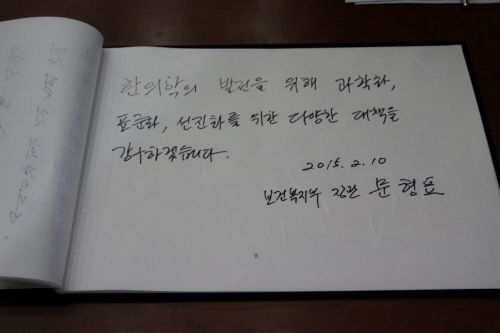 한의학의 발전을 위해 과학화,
표준화, 선진화를 위한 다양한 대책을
강구하겠습니다.
2015. 2. 10
보건복지부 장관 문형표